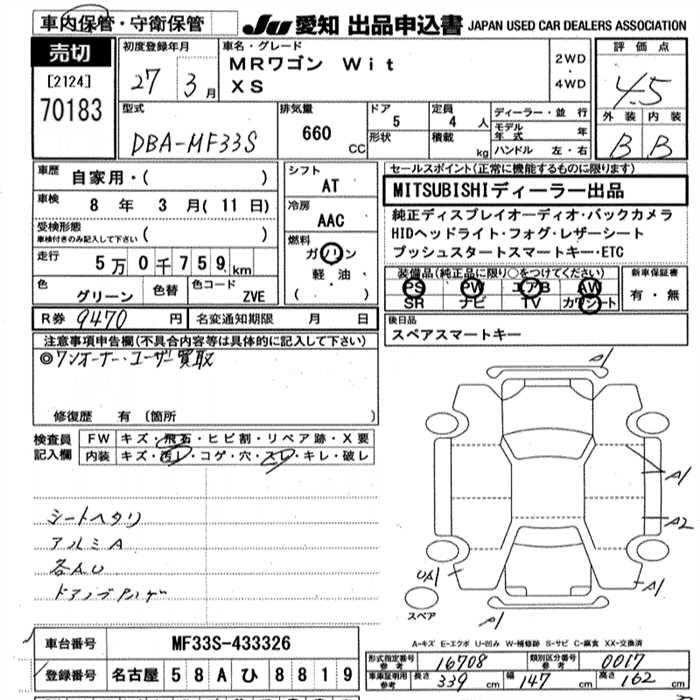 車内保管・守衛保管
JU 愛知 出品申込書 JAPAN USED CAR DEALERS ASSOCIATION
売切
[2124]
70183
初度登録年月
27年 3月
車名・グレード
MRワゴン Wit
XS
2WD
・
4WD
評価点
4.5
外装 内装
B B
型式
DBA-MF33S
排気量
660 CC
ドア
5
形状
定員
4 人
積載
kg
ディーラー・並行
モデル年式 年
ハンドル 左・右
車歴
自家用・( )
車検
8 年 3 月( 11 日)
受検形態
車検付きのみ記入して下さい ( )
走行
5万0千759km
色
グリーン
色替
色コード
ZVE
シフト
AT
冷房
AAC
燃料
ガソリン
軽・油
( )
R券 9470 円
名変通知期限 月 日
セールスポイント(正常に機能するものに限ります)
MITSUBISHIディーラー出品
純正ディスプレイオーディオ・バックカメラ
HIDヘッドライト・フォグ・レザーシート
プッシュスタートスマートキー・ETC
装備品(純正品に限り○をつけてください)
PS PW エアB AW
SR ナビ TV カワシート
新車保証書
有・無
後日品
スペアスマートキー
注意事項申告欄(不具合内容等は具体的に記入して下さい)
◎ワンオーナー・ユーザー買取
修復歴 有 〔箇所 〕
検査員記入欄
FW キズ・飛石・ヒビ割・リペア跡・X要
内装 キズ・汚レ・コゲ・穴・スレ・キレ・破レ
シートヘタリ
アルミA
各AU
A1
A1
A2
UA1
A1
A1
スペア
A-キズ E-エクボ U-凹み W-補修跡 S-サビ C-腐食 XX-交換済
車台番号 MF33S-433326
登録番号 名古屋 58A ひ 8819
形式指定番号 参考 16708
類別区分番号 参考 0017
車体証明用 参考 長さ 339 cm 幅 147 cm 高さ 162 cm